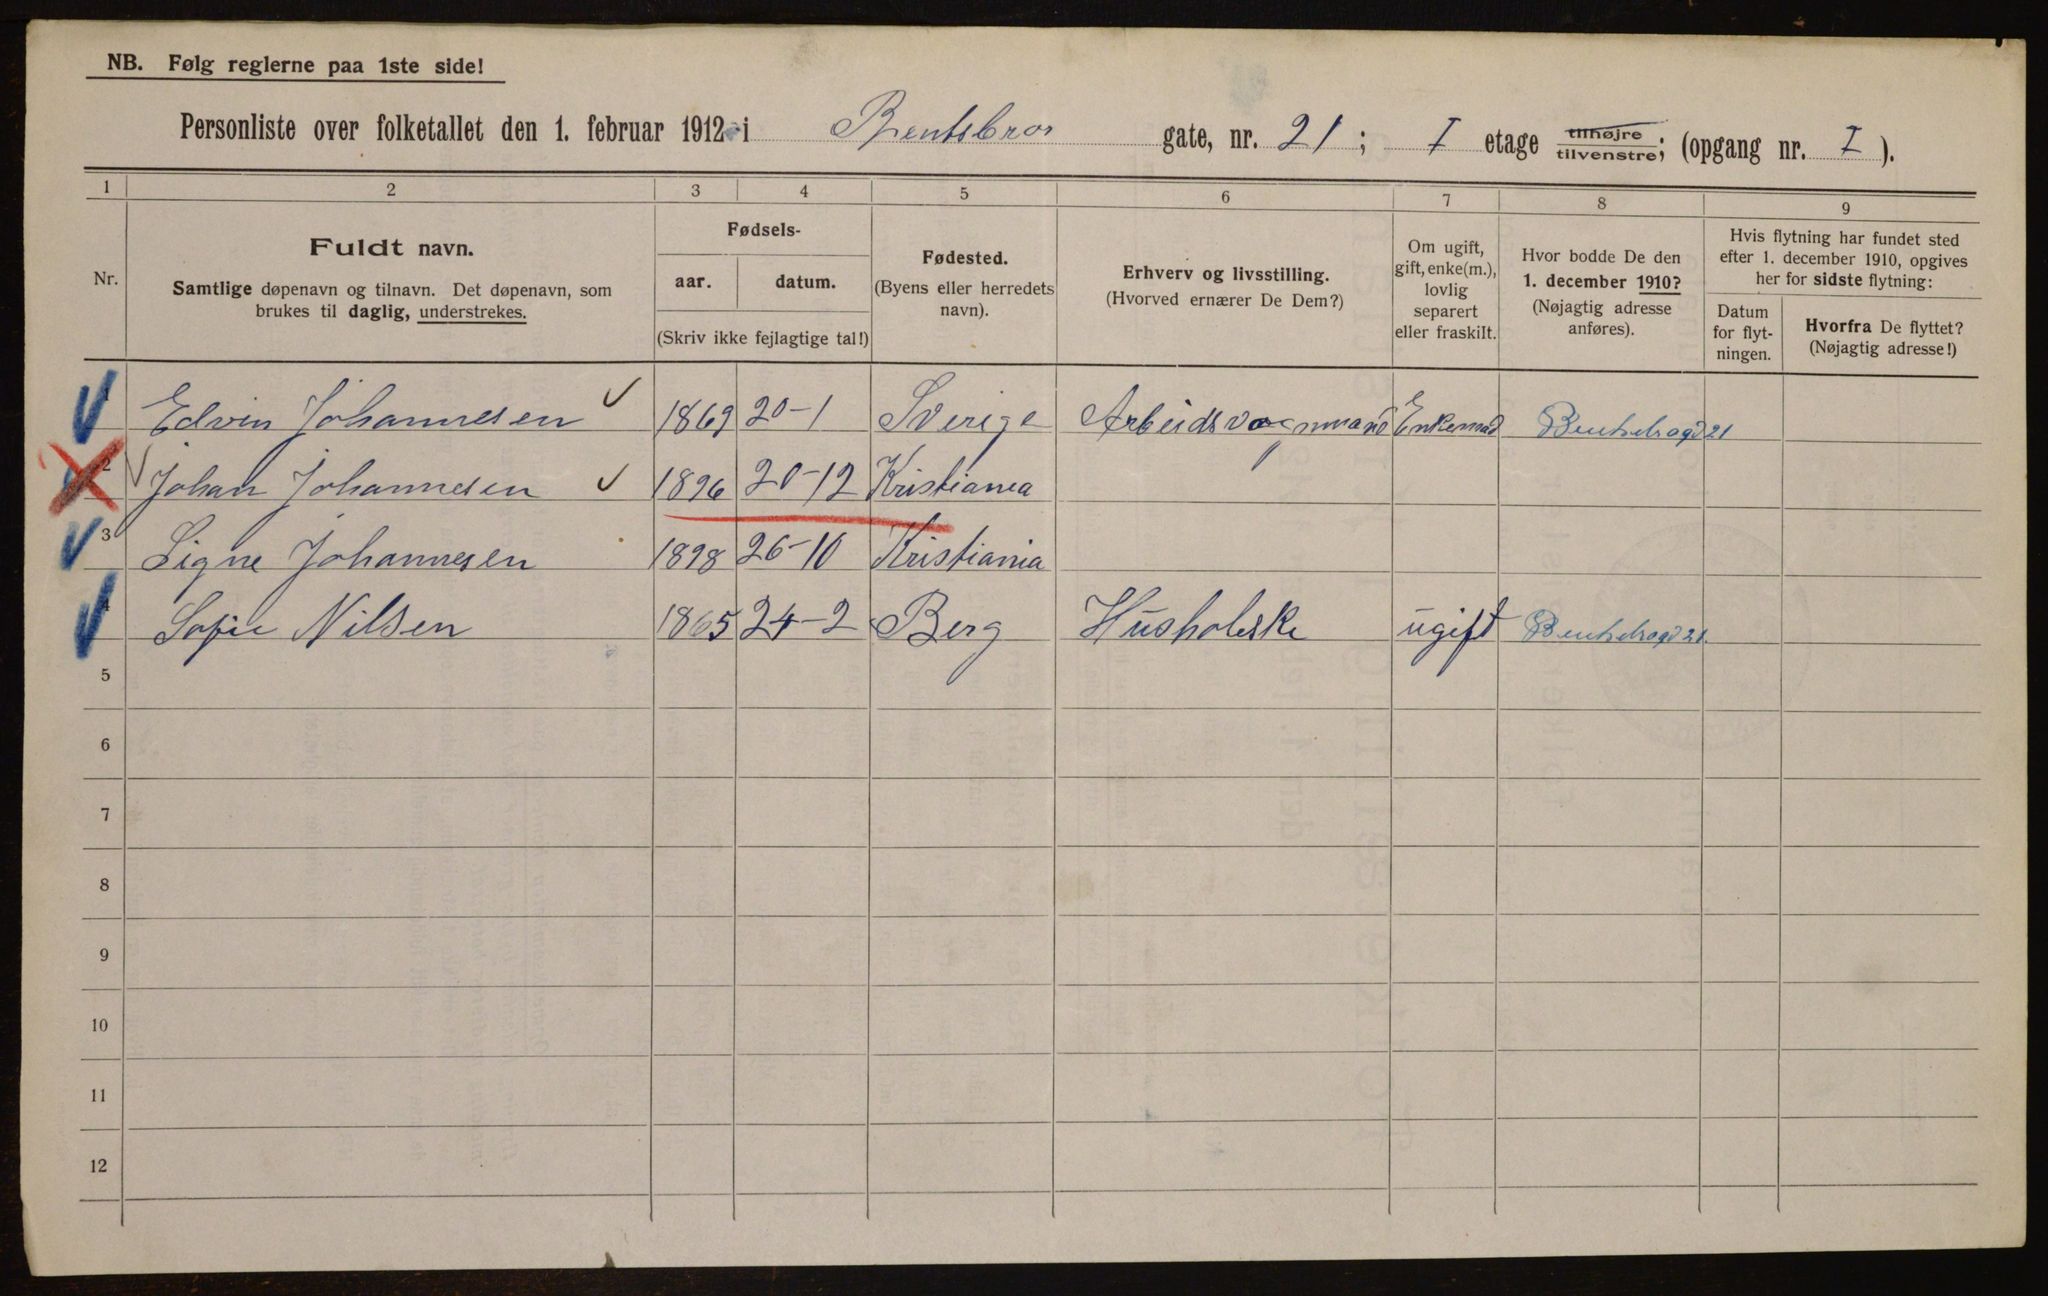 NB. Følg reglerne paa 1ste side!
Personliste over folketallet den 1. februar 1912 i Bentsbro gate, nr. 21; I etage tilhøjre/tilvenstre; (opgang nr. I).
1 2 3 4 5 6 7 8 9
Nr.
Fuldt navn.
Samtlige døpenavn og tilnavn. Det døpenavn, som
brukes til daglig, understrekes.
Fødsels-
aar. datum.
(Skriv ikke fejlagtige tal!)
Fødested.
(Byens eller herredets
navn).
Erhverv og livsstilling.
(Hvorved ernærer De Dem?)
Om ugift,
gift, enke(m.),
lovlig
separert
eller fraskilt.
Hvor bodde De den
1. december 1910?
(Nøjagtig adresse
anføres).
Hvis flytning har fundet sted
efter 1. december 1910, opgives
her for sidste flytning:
Datum
for flyt-
ningen.
Hvorfra De flyttet?
(Nøjagtig adresse!)
1 Edvin Johannesen 1869 20-1 Sverige Arbeidsvognmand Enkemad Bentsebrogd 21
2 Johan Johannesen 1896 20-12 Kristiania
3 Signe Johannesen 1898 26-10 Kristiania
4 Sofie Nilsen 1865 24-2 Berg Husholeske ugift Bentsebrogd 21.
5
6
7
8
9
10
11
12